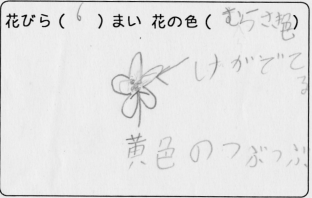 花びら(6)まい 花の色(むらさき色)
けがでてる
黄色のつぶつぶ